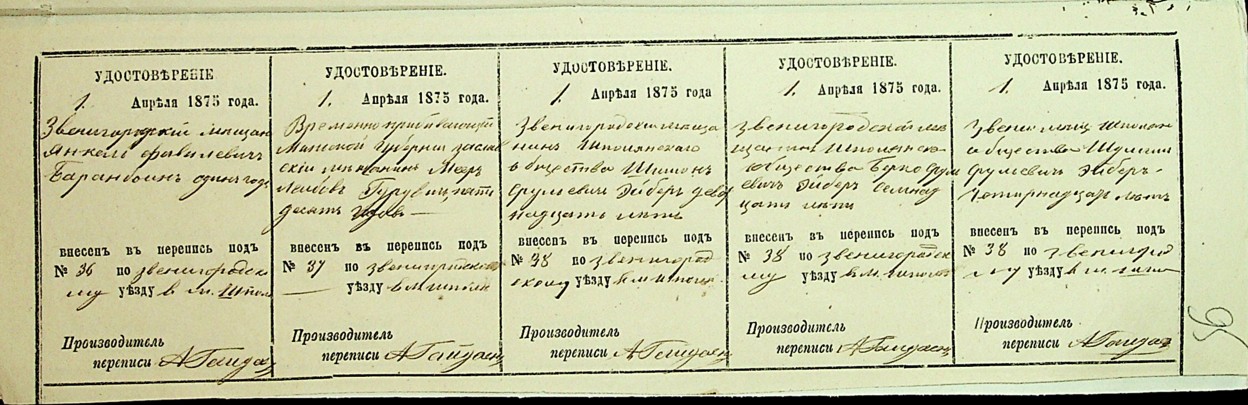 УДОСТОВѢРЕНІЕ
1. Апрѣля 1875 года.
Звенигородскій мѣщан
Янкель Фавилевичъ
Баранбоинъ одинъ год
внесенъ въ перепись подъ
№ 36 по звенигородско
му уѣзду в м. Шпол
Производитель
переписи А Гайда
УДОСТОВѢРЕНІЕ.
1. Апрѣля 1875 года.
Временно
Минской Губерніи заслав
скій мѣщанинъ Меер
Гурвиц пяти
десятъ
внесенъ въ перепись подъ
№ 37 по звенигородско
уѣзду в м шпол
Производитель
переписи А Гайда
УДОСТОВѢРЕНІЕ.
1. Апрѣля 1875 года
Звенигородскій мѣща
нинъ Шполянскаго
общества Шимонъ
Срулевич Эйберъ девят
надцать лѣтъ
внесенъ въ перепись подъ
№ 38 по звенигород
скому уѣзду в м шпол
Производитель
переписи А Гайда
УДОСТОВѢРЕНІЕ.
1. Апрѣля 1875 года.
звенигородскій мѣ
щанинъ Шполянско
общества Берко Срул
евичъ Эйберъ Семнад
цать лѣтъ
внесенъ въ перепись подъ
№ 38 по звенигородск
му уѣзду в м. шпол
Производитель
переписи А Гайда
УДОСТОВѢРЕНІЕ.
1. Апрѣля 1875 года.
Звениг мѣщ Шполян
общества
Срулевич Эйберъ
Четырнадцать лѣтъ
внесенъ въ перепись подъ
№ 38 по звенигород
му уѣзду в м. шпол
Производитель
переписи А Гайда